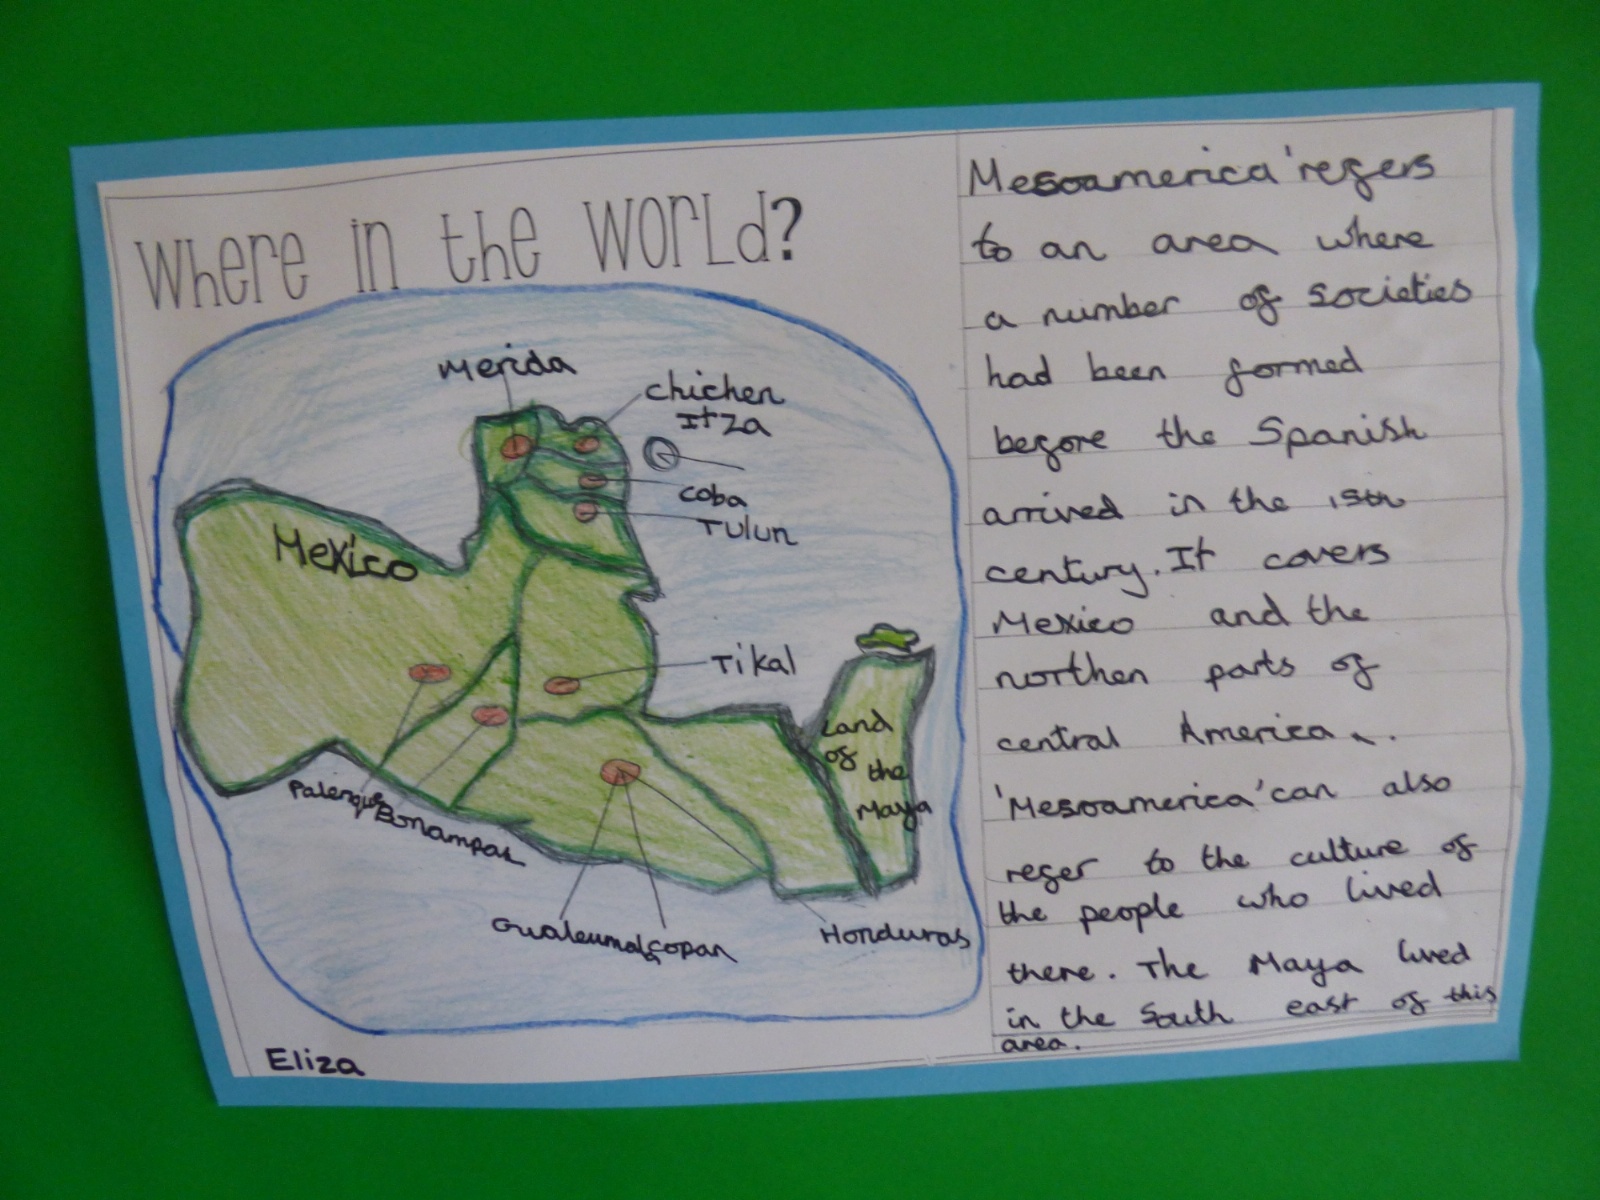 Where in the World?
Merida
Chichen
Itza
Coba
Tulun
Mexico
Tikal
Land
of
the
Maya
Palenque
Bonampas
Copan
Honduras
Eliza
Mesoamerica' refers
to an area where
a number of societies
had been formed
before the Spanish
arrived in the 15th
century. It covers
Mexico and the
northen parts of
central America.
'Mesoamerica' can also
refer to the culture of
the people who lived
there. The Maya lived
in the South east of this
area.